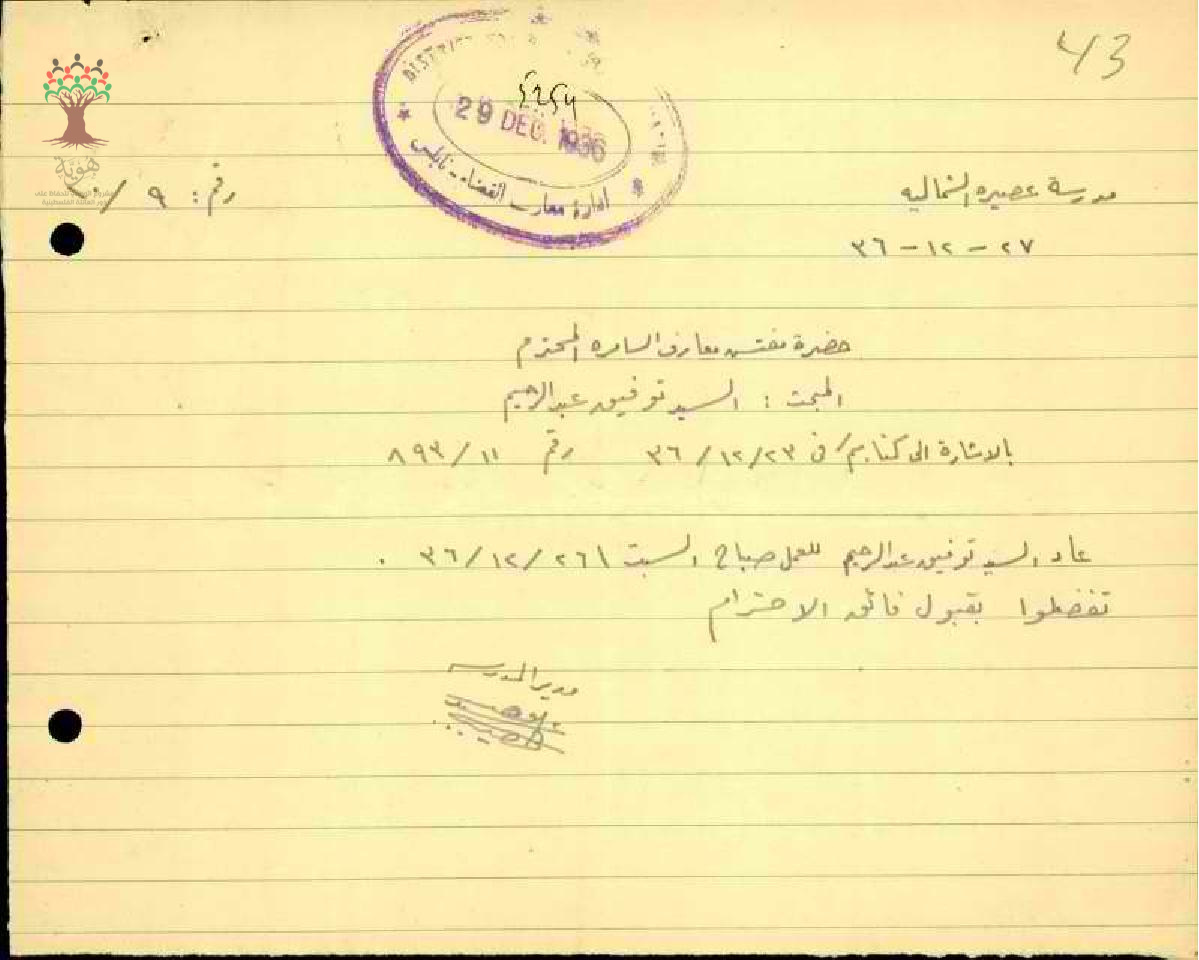 43
DISTRICT
٤٢٥٩
29 DEC. 1936
ادارة معارف القضاء - نابلس
هويّة
مدرسة عصيره الشماليه
رقم : ٩ / ٢٠
٢٧ - ١٢ - ٣٦
حضرة مفتش معارف السامره المحترم
المبحث : السيد توفيق عبدالرحيم
بالاشارة الى كتابكم في ٢٣/١٢/٣٦ رقم ١١/٨٩٣
عاد السيد توفيق عبدالرحيم للعمل صباح السبت ٢٦/١٢/٣٦ .
تفضلوا بقبول فائق الاحترام
مدير المدرسه